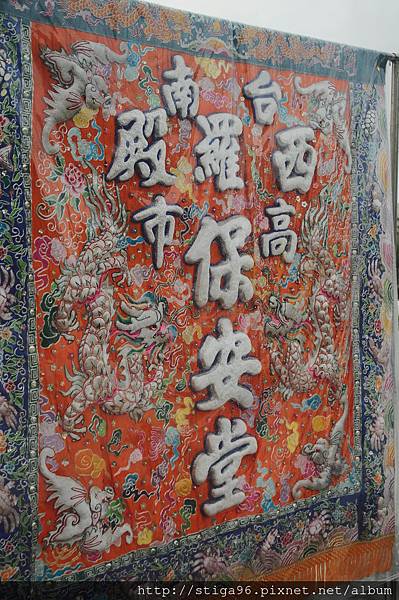 台南
西羅殿
高市
保安堂
http://stiga96.pixnet.net/album